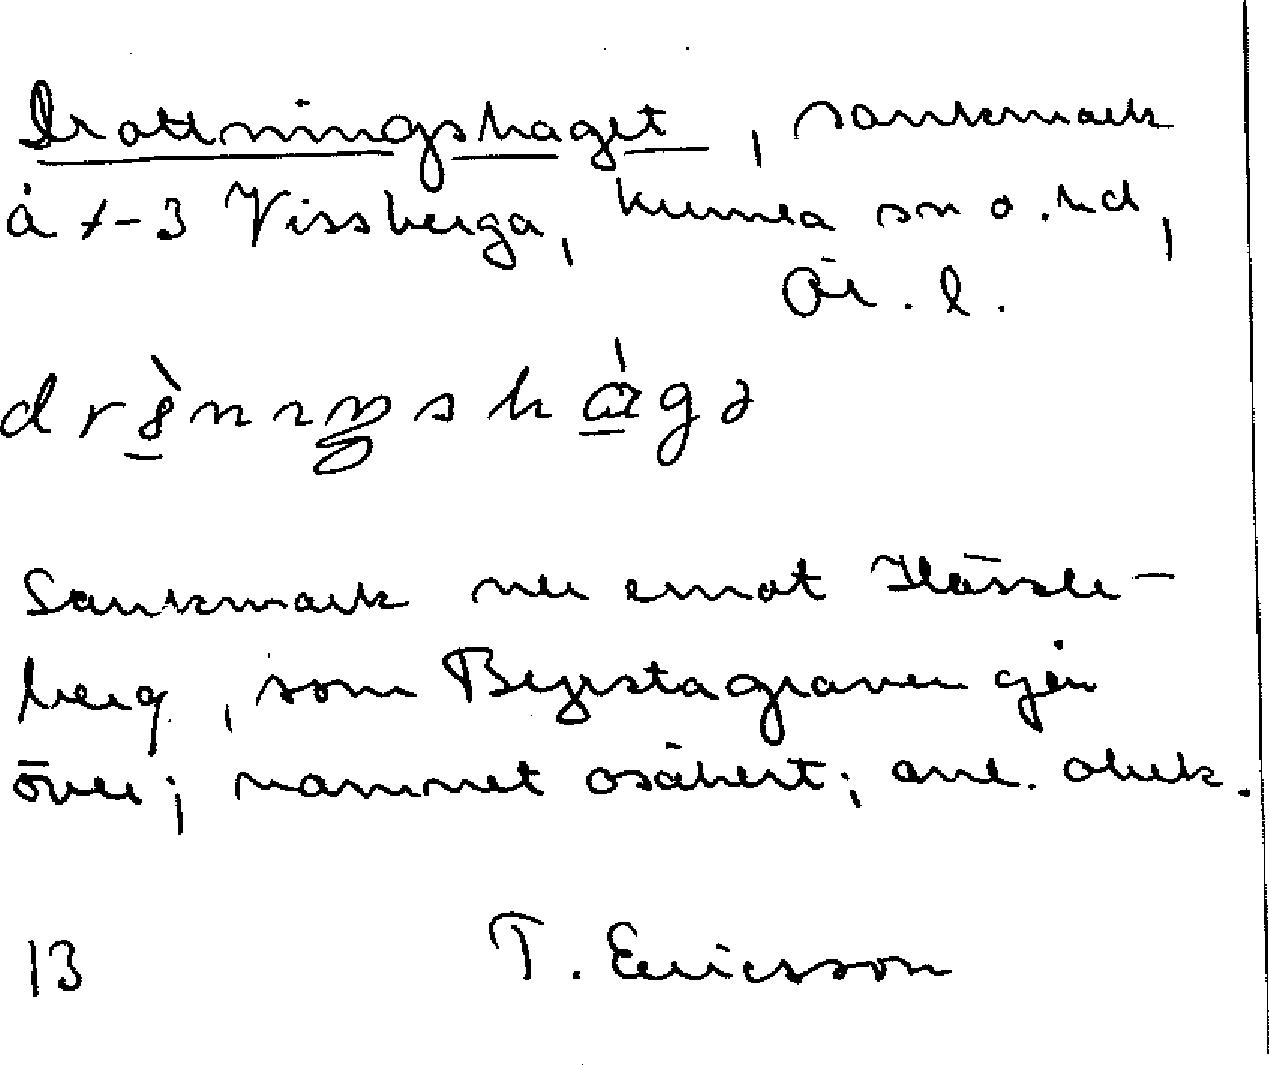 Drottningshaget, sankmark
å 1-3 Vissberga, Kumla sn o. hd,
Ör. l.
Sankmark ner emot Hässle-
berg, som Byrstagraven går
över; namnet osäkert; anl. obek.
13 T. Ericsson